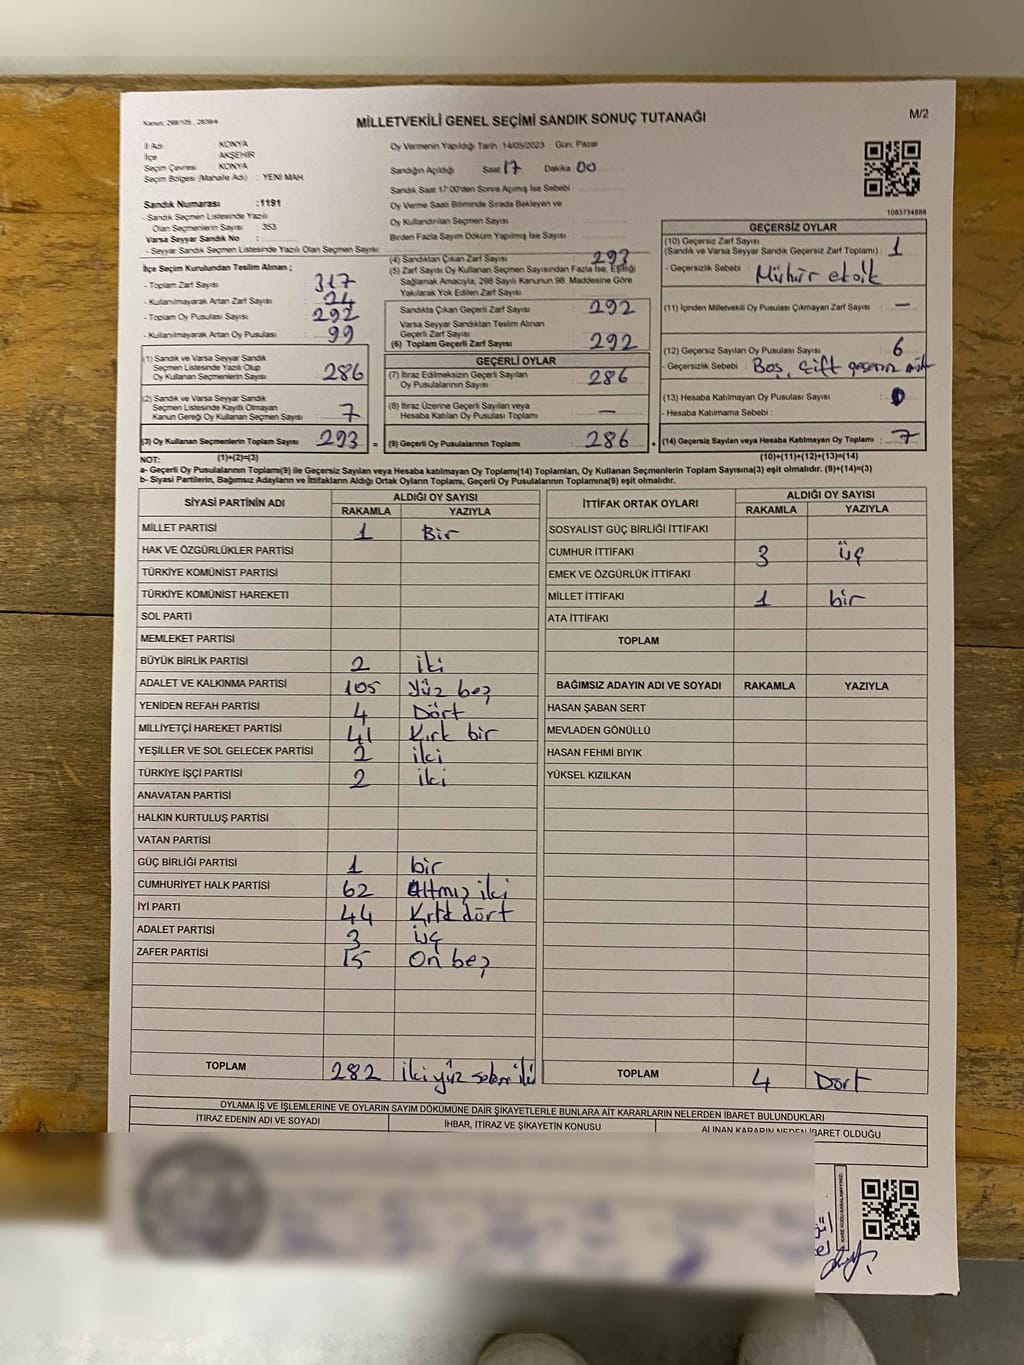 Kanun: 298/105 , 2839/4
MİLLETVEKİLİ GENEL SEÇİMİ SANDIK SONUÇ TUTANAĞI
M/2
İl Adı : KONYA
İlçe : AKŞEHİR
Seçim Çevresi : KONYA
Seçim Bölgesi (Mahalle Adı) : YENİ MAH.
Sandık Numarası :1191
- Sandık Seçmen Listesinde Yazılı
Olan Seçmenlerin Sayısı : 353
Varsa Seyyar Sandık No :
- Seyyar Sandık Seçmen Listesinde Yazılı Olan Seçmen Sayısı:
Oy Vermenin Yapıldığı Tarih :14/05/2023 Gün: Pazar
Sandığın Açıldığı Saat: 17 Dakika: 00
Sandık Saat 17:00'den Sonra Açılmış İse Sebebi :
Oy Verme Saati Bitiminde Sırada Bekleyen ve
Oy Kullandırılan Seçmen Sayısı
Birden Fazla Sayım Döküm Yapılmış İse Sayısı
1083734888
İlçe Seçim Kurulundan Teslim Alınan ;
- Toplam Zarf Sayısı : 317
- Kullanılmayarak Artan Zarf Sayısı : 24
- Toplam Oy Pusulası Sayısı : 292
- Kullanılmayarak Artan Oy Pusulası : 99
(1) Sandık ve Varsa Seyyar Sandık
Seçmen Listesinde Yazılı Olup
Oy Kullanan Seçmenlerin Sayısı : 286
(2) Sandık ve Varsa Seyyar Sandık
Seçmen Listesinde Kayıtlı Olmayan
Kanun Gereği Oy Kullanan Seçmen Sayısı : 7
(3) Oy Kullanan Seçmenlerin Toplam Sayısı : 293 =
(4) Sandıktan Çıkan Zarf Sayısı : 293
(5) Zarf Sayısı Oy Kullanan Seçmen Sayısından Fazla İse, Eşitliği
Sağlamak Amacıyla, 298 Sayılı Kanunun 98. Maddesine Göre
Yakılarak Yok Edilen Zarf Sayısı
Sandıkta Çıkan Geçerli Zarf Sayısı : 292
Varsa Seyyar Sandıktan Teslim Alınan
Geçerli Zarf Sayısı
(6) Toplam Geçerli Zarf Sayısı : 292
GEÇERLİ OYLAR
(7) İtiraz Edilmeksizin Geçerli Sayılan
Oy Pusulalarının Sayısı : 286
(8) İtiraz Üzerine Geçerli Sayılan veya
Hesaba Katılan Oy Pusulası Toplamı : —
(9) Geçerli Oy Pusulalarının Toplamı : 286 +
GEÇERSİZ OYLAR
(10) Geçersiz Zarf Sayısı
(Sandık ve Varsa Seyyar Sandık Geçersiz Zarf Toplamı) : 1
- Geçersizlik Sebebi : Mühür eksik
(11) İçinden Milletvekili Oy Pusulası Çıkmayan Zarf Sayısı : —
(12) Geçersiz Sayılan Oy Pusulası Sayısı : 6
- Geçersizlik Sebebi : Boş, çift
(13) Hesaba Katılmayan Oy Pusulası Sayısı : 0
- Hesaba Katılmama Sebebi :
(14) Geçersiz Sayılan veya Hesaba Katılmayan Oy Toplamı : 7
NOT: (1)+(2)=(3) (10)+(11)+(12)+(13)=(14)
a- Geçerli Oy Pusulalarının Toplamı(9) ile Geçersiz Sayılan veya Hesaba katılmayan Oy Toplamı(14) Toplamları, Oy Kullanan Seçmenlerin Toplam Sayısına(3) eşit olmalıdır. (9)+(14)=(3)
b- Siyasi Partilerin, Bağımsız Adayların ve İttifakların Aldığı Ortak Oyların Toplamı, Geçerli Oy Pusulalarının Toplamına(9) eşit olmalıdır.
SİYASİ PARTİNİN ADI ALDIĞI OY SAYISI
RAKAMLA YAZIYLA
MİLLET PARTİSİ 1 Bir
HAK VE ÖZGÜRLÜKLER PARTİSİ
TÜRKİYE KOMÜNİST PARTİSİ
TÜRKİYE KOMÜNİST HAREKETİ
SOL PARTİ
MEMLEKET PARTİSİ
BÜYÜK BİRLİK PARTİSİ 2 iki
ADALET VE KALKINMA PARTİSİ 105 Yüz beş
YENİDEN REFAH PARTİSİ 4 Dört
MİLLİYETÇİ HAREKET PARTİSİ 41 Kırk bir
YEŞİLLER VE SOL GELECEK PARTİSİ 2 iki
TÜRKİYE İŞÇİ PARTİSİ 2 iki
ANAVATAN PARTİSİ
HALKIN KURTULUŞ PARTİSİ
VATAN PARTİSİ
GÜÇ BİRLİĞİ PARTİSİ 1 bir
CUMHURİYET HALK PARTİSİ 62 Altmış iki
İYİ PARTİ 44 Kırk dört
ADALET PARTİSİ 3 üç
ZAFER PARTİSİ 15 On beş
TOPLAM 282 İki yüz seksen iki
İTTİFAK ORTAK OYLARI ALDIĞI OY SAYISI
RAKAMLA YAZIYLA
SOSYALİST GÜÇ BİRLİĞİ İTTİFAKI
CUMHUR İTTİFAKI 3 üç
EMEK VE ÖZGÜRLÜK İTTİFAKI
MİLLET İTTİFAKI 1 bir
ATA İTTİFAKI
TOPLAM
BAĞIMSIZ ADAYIN ADI VE SOYADI RAKAMLA YAZIYLA
HASAN ŞABAN SERT
MEVLADEN GÖNÜLLÜ
HASAN FEHMİ BIYIK
YÜKSEL KIZILKAN
TOPLAM 4 Dört
OYLAMA İŞ VE İŞLEMLERİNE VE OYLARIN SAYIM DÖKÜMÜNE DAİR ŞİKAYETLERLE BUNLARA AİT KARARLARIN NELERDEN İBARET BULUNDUKLARI
İTİRAZ EDENİN ADI VE SOYADI İHBAR, İTİRAZ VE ŞİKAYETİN KONUSU ALINAN KARARIN NEDEN İBARET OLDUĞU